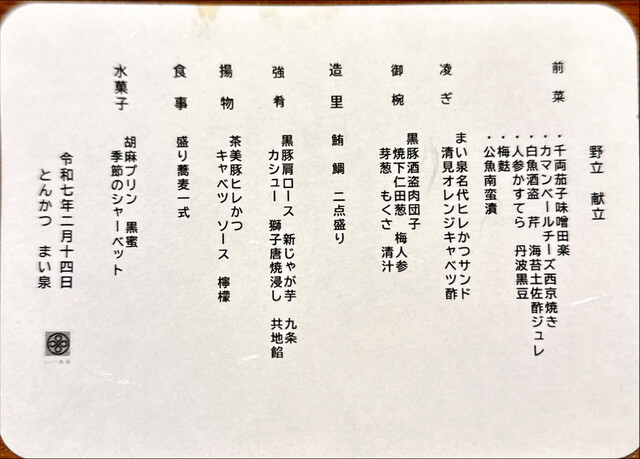 野立 献立
前菜
・千両茄子味噌田楽
・カマンベールチーズ西京焼き
・白魚酒盗 芹 海苔土佐酢ジュレ
・人参かすてら 丹波黒豆
・梅麩
・公魚南蛮漬
凌ぎ
まい泉名代ヒレかつサンド
清見オレンジキャベツ酢
御椀
黒豚酒盗肉団子
焼下仁田葱 梅人参
芽葱 もくさ 清汁
造里
鮪 鯛 二点盛り
強肴
黒豚肩ロース 新じゃが芋 九条
カシュー 獅子唐焼浸し 共地餡
揚物
茶美豚ヒレかつ
キャベツ ソース 檸檬
食事
盛り蕎麦一式
水菓子
胡麻プリン 黒蜜
季節のシャーベット
令和七年二月十四日
とんかつ まい泉